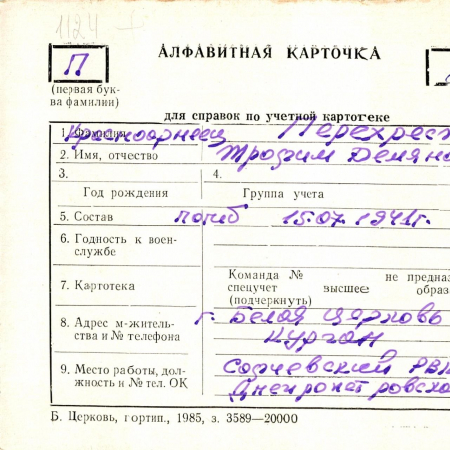 1124
АЛФАВИТНАЯ КАРТОЧКА
П
(первая бук-
ва фамилии)
для справок по учетной картотеке
1. Фамилия Красноармеец Перехрест
2. Имя, отчество Трофим Демяно
3. 4.
Год рождения Группа учета
5. Состав погиб 15.07.1941г.
6. Годность к воен-
службе
Команда № не предназ
7. Картотека спецучет высшее образ
(подчеркнуть)
8. Адрес м-житель- г. Белая Церковь
ства и № телефона Курган
9. Место работы, дол- РВК
жность и № тел. ОК
Б. Церковь, гортип., 1985, з. 3589—20000